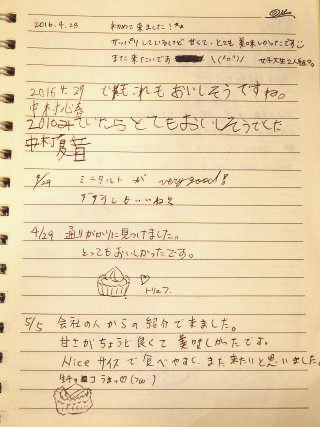 2016.4.28 初めて来ました！
サッパリしているけど甘くて、とても美味しかったです
また来たいです \(^o^)/ 女子大生2人組
2016 4.29 どれもこれもおいしそうですね。
中村心香
2016 みていたらとてもおいしそうでした
中村夏音
4/29 ミニタルトが very good!
もいいね!!
4/29 通りがかりに見つけました。
とってもおいしかったです。
♡
トリュフ.
5/5 会社の人からの紹介で来ました。
甘さがちょうど良くて美味しかったです。
Niceサイズで食べやすく、また来たいと思いました。
生チョコ うまっ♡